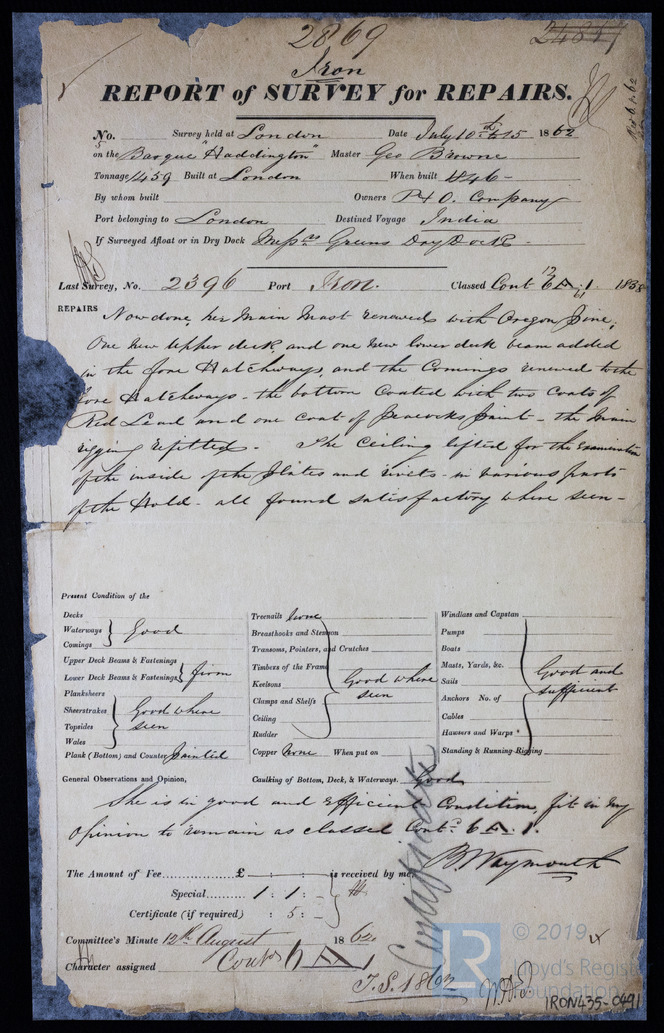 2869
Iron
REPORT of SURVEY for REPAIRS.
No. Survey held at London Date July 10th to 15 1862
on the Barque "Haddington" Master Geo Browne
Tonnage 1459 Built at London When built 1846 -
By whom built Owners P & O. Company
Port belonging to London Destined Voyage India
If Surveyed Afloat or in Dry Dock Messrs Greens Dry Dock -
Last Survey, No. 2396 Port Iron. Classed Contd 6 A 1 1858
REPAIRS Now done, her Main Mast renewed with Oregon Pine,
One new upper deck, and one new lower deck beam added
in the fore Hatchways, and the Comings renewed to the
fore Hatchways - the bottom Coated with two Coats of
Red Lead and one coat of Peacocks Paint - the main
rigging refitted - The Ceiling lifted for the Examination
of the inside of the Plates and rivets - in various parts
of the Hold - all found satisfactory where seen -
Present Condition of the
Decks
Waterways
Comings
Good
Upper Deck Beams & Fastenings
Lower Deck Beams & Fastenings
firm
Planksheers
Sheerstrakes
Topsides
Wales
Good where
seen
Plank (Bottom) and Counter painted
Treenails None
Breasthooks and Stemson
Transoms, Pointers, and Crutches
Timbers of the Frame
Keelsons
Clamps and Shelfs
Ceiling
Rudder
Good where
seen
Copper None When put on
Windlass and Capstan
Pumps
Boats
Masts, Yards, &c.
Sails
Anchors No. of
Cables
Hawsers and Warps
Standing & Running Rigging
Good and
sufficient
General Observations and Opinion, Caulking of Bottom, Deck, & Waterways. Good
She is in good and efficient Condition, fit in my
Opinion to remain as classed Contd 6 A. 1.
B. Waymouth
The Amount of Fee £ : : is received by me,
Special 1 : 1 : -
Certificate (if required) : 5 : -
Certificate
Committee's Minute 12th August 1862
Character assigned Contd 6 A 1
T.S. 1862
LR © 2019
Lloyd's Register
Foundation
IRON435-0491